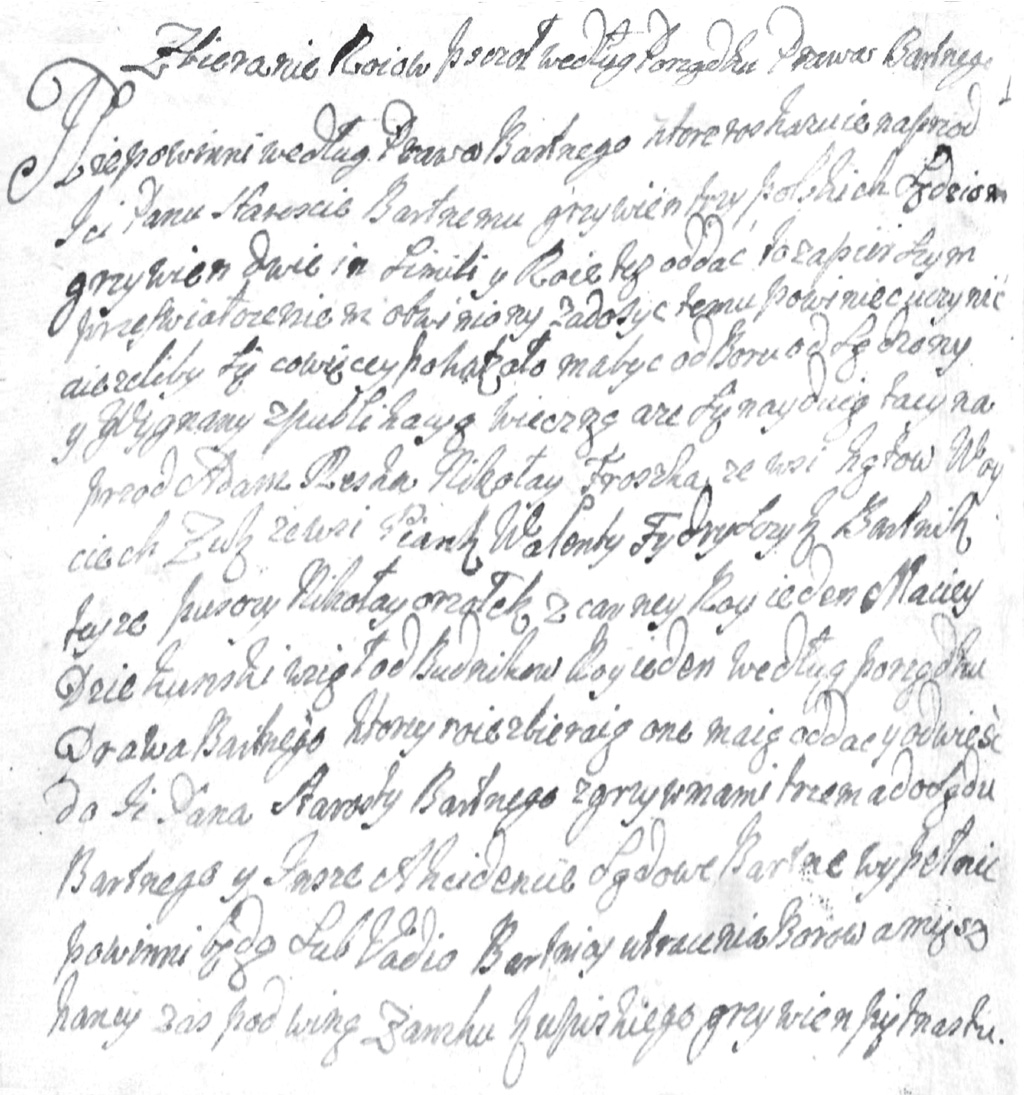 Zbieranie Roiow pszczoł według Porządku Prawa Bartnego
Niepowinni według Prawa Bartnego ktore roskazuie naprzod
Ici Panu Staroscie Bartnemu grzywien trzy polskich Sędziom
grzywien dwie in Simili y Roie też oddać to za pierszym
przeswiatczeniem obwiniony Zadosyc temu powiniec uczynić
aiezeliby się co więcey pokazało ma byc od Boru odsądzony
y Wygnany z publikacyą wieczną aże się nayduią tacy na
przod Adam Reska Mikołay Froszka ze wsi Kątow Woy
ciech Zuk ze wsi Piank Walenty Fydryszyk Bartnik
teyze puszczy Mikołay orzołek z carney Roy ieden Maciey
Dziekunski wziął od Budnikow Roy ieden według porządku
Prawa Bartnego ktorzy roie zbieraią one maią oddac y odwieść
do Ici Pana Starosty Bartnego z grzywnami trzema do Sądu
Bartnego y Insze Akcidencie Sądowe Bartne wypełnic
powinni będą Lub Vadio Bartnicy utracenia Borow a miesz
kancy zas pod winą Zamku grzywien piętnastu.